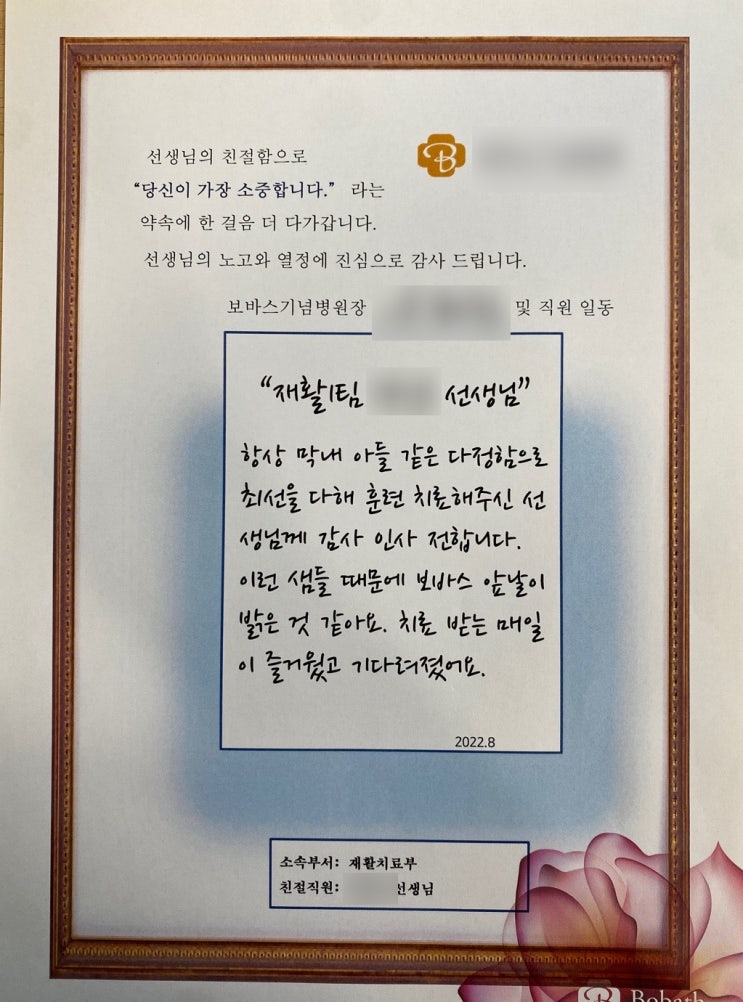 선생님의 친절함으로
B
“당신이 가장 소중합니다.” 라는
약속에 한 걸음 더 다가갑니다.
선생님의 노고와 열정에 진심으로 감사 드립니다.
보바스기념병원장 및 직원 일동
“재활1팀 선생님”
항상 막내 아들 같은 다정함으로
최선을 다해 훈련 치료해주신 선
생님께 감사 인사 전합니다.
이런 샘들 때문에 보바스 앞날이
밝은 것 같아요. 치료 받는 매일
이 즐거웠고 기다려졌어요.
2022.8
소속부서: 재활치료부
친절직원: 선생님
B Bobath